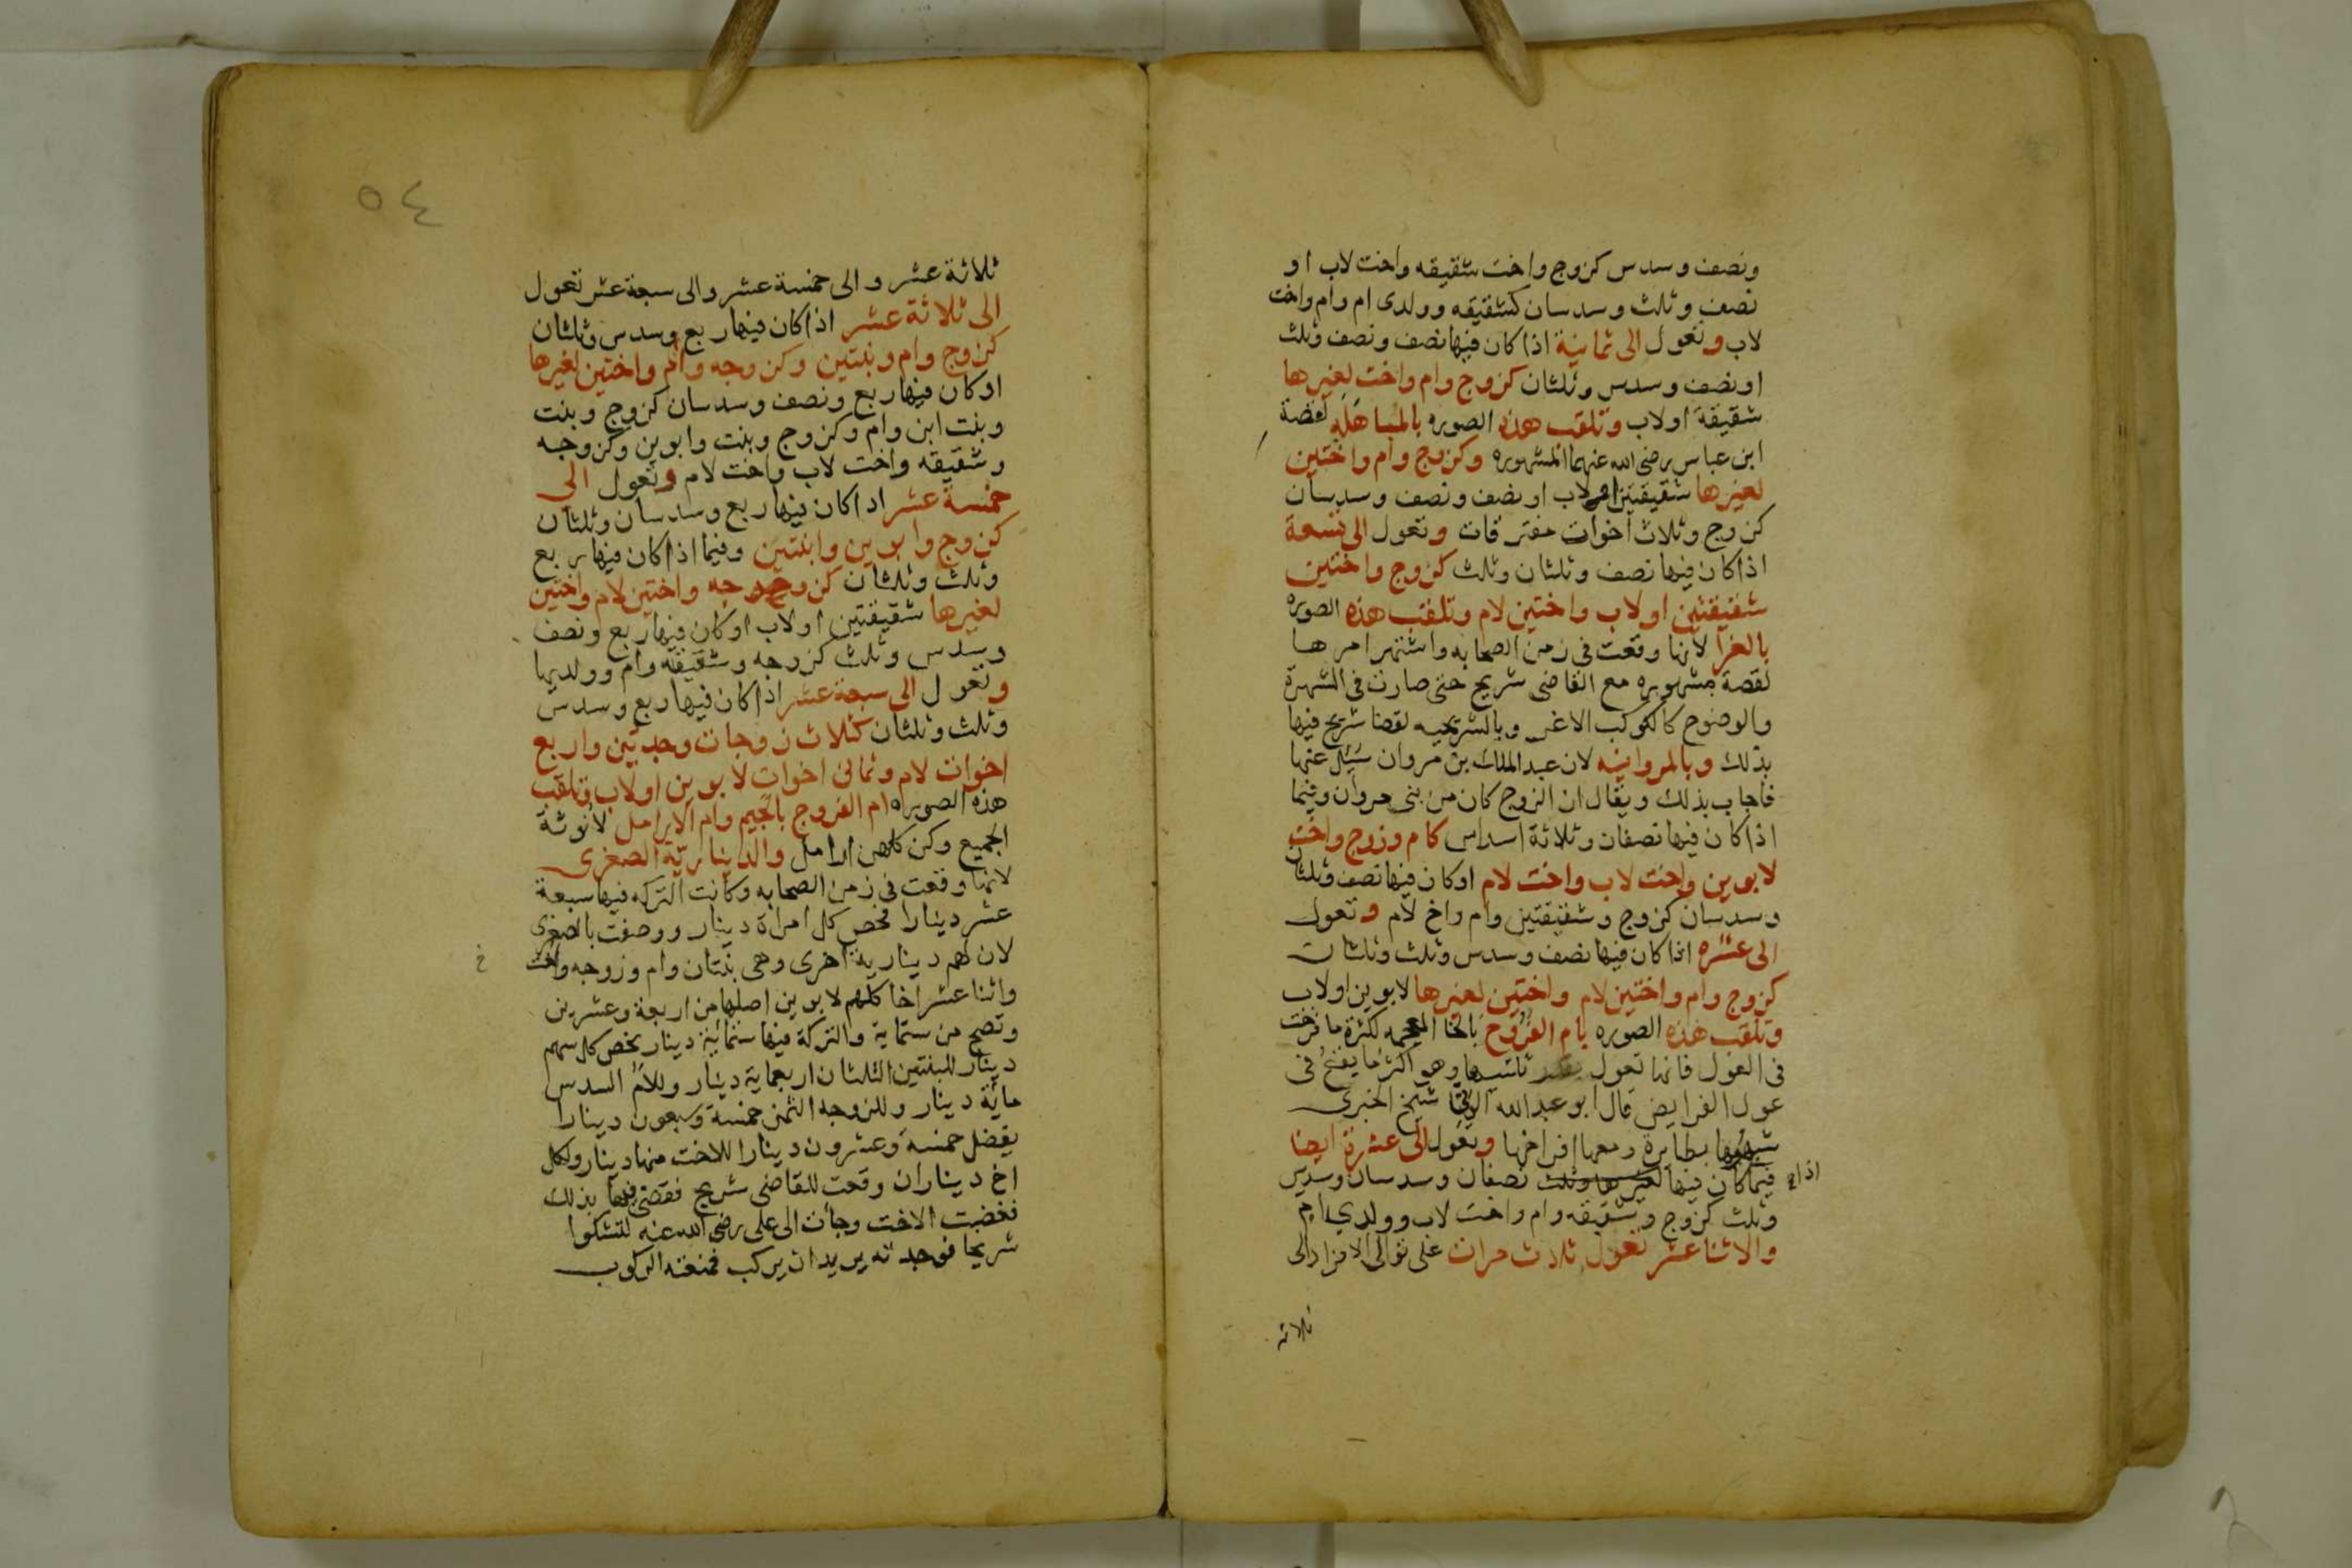 ونصف وسدس كزوج واخت شقيقه واخت لاب او
نصف وثلث وسدسان كشقيقه وولدى ام وام واخت
لاب وتعول الى ثمانية اذا كان فيها نصف ونصف وثلث
او نصف وسدس وثلثان كزوج وام واخت لغيرها
شقيقة اولاب وتلقب هذه الصوره بالمباهله لقصة
ابن عباس رضى الله عنهما المشهوره وكزوج وام واختين
لغيرها شقيقتين اولاب او نصف ونصف وسدسان
كزوج وثلاث اخوات مفترقات وتعول الى تسعة
اذا كان فيها نصف وثلثان وثلث كزوج واختين
شقيقتين اولاب واختين لام وتلقب هذه الصوره
بالغرا لانها وقعت فى زمن الصحابه واشتهر امرها
لقصة مشهوره مع القاضى شريح حتى صارت فى الشهرة
والوضوح كالكوكب الاغر وبالشريحيه لقضا شريح فيها
بذلك وبالمروانيه لان عبد الملك بن مروان سئل عنها
فاجاب بذلك ويقال ان الزوج كان من بنى مروان وفيما
اذا كان فيها نصفان وثلاثة اسداس كام وزوج واخت
لابوين واخت لاب واخت لام اوكان فيها نصف وثلثان
وسدسان كزوج وشقيقتين وام واخ لام وتعول
الى عشره اذا كان فيها نصف وسدس وثلث وثلثان
كزوج وام واختين لام واختين لغيرها لابوين اولاب
وتلقب هذه الصوره بام الفروخ بالخا المعجمه لكثرة ما فرخت
فى العول فانها تعول ثلثيها وهو اكثر ما يقع فى
عول الفرايض قال ابو عبد الله الونى شيخ الخبرى
شبهوها بطايرة ومعها افراخها وتعول الى عشرة ايضا
اذا
فيما كان فيها نصفان وسدسان وسدس
وثلث كزوج وشقيقه وام واخت لاب وولدي ام
والاثنا عشر تعول ثلاث مرات على توالى الافراد الى
ثلاثه
٥٤
ثلاثة عشر والى خمسة عشر والى سبعة عشر تعول
الى ثلاثة عشر اذا كان فيها ربع وسدس وثلثان
كزوج وام وبنتين وكزوجه وام واختين لغيرها
اوكان فيها ربع ونصف وسدسان كزوج وبنت
وبنت ابن وام وكزوج وبنت وابوين وكزوجه
وشقيقه واخت لاب واخت لام وتعول الى
خمسة عشر اذا كان فيها ربع وسدسان وثلثان
كزوج وابوين وابنتين وفيما اذا كان فيها ربع
وثلث وثلثان كزوجه واختين لام واختين
لغيرها شقيقتين اولاب اوكان فيها ربع ونصف
وسدس وثلث كزوجه وشقيقة وام وولديها
وتعول الى سبعة عشر اذا كان فيها ربع وسدس
وثلث وثلثان كثلاث زوجات وجدتين واربع
اخوات لام وثمانى اخوات لابوين اولاب وتلقب
هذه الصوره ام الفروج بالجيم وام الارامل لانوثة
الجميع وكن كلهن ارامل والدينارية الصغرى
لانها وقعت فى زمن الصحابه وكانت التركه فيها سبعة
عشر دينارا فخص كل امراة دينار ووصفت بالصغرى
لان لهم دينارية اخرى وهى بنتان وام وزوجه واخت
واثنا عشر اخا كلهم لابوين اصلها من اربعة وعشرين
وتصح من ستماية والتركة فيها ستمائية دينار يخص كل سهم
دينار للبنتين الثلثان اربعماية دينار وللام السدس
مائة دينار وللزوجه الثمن خمسة وسبعون دينارا
يفضل خمسة وعشرون دينارا للاخت منها دينار ولكل
اخ ديناران وقعت للقاضى شريح فقضى فيها بذلك
فغضبت الاخت وجات الى على رضى الله عنه لتشكوا
شريحا فوجدته يريد ان يركب فمنعته الركوب